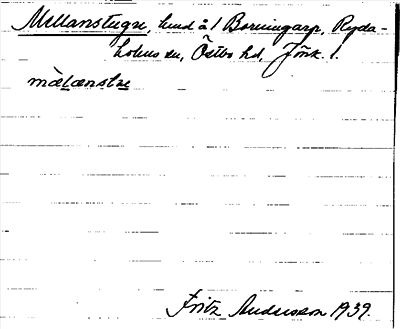 Mellanstugu, hmd å 1 Borningarp, Ryda-
holms sn, Östbo hd, Jönk. l.
mælænstæ
Fritz Andersson 1939.